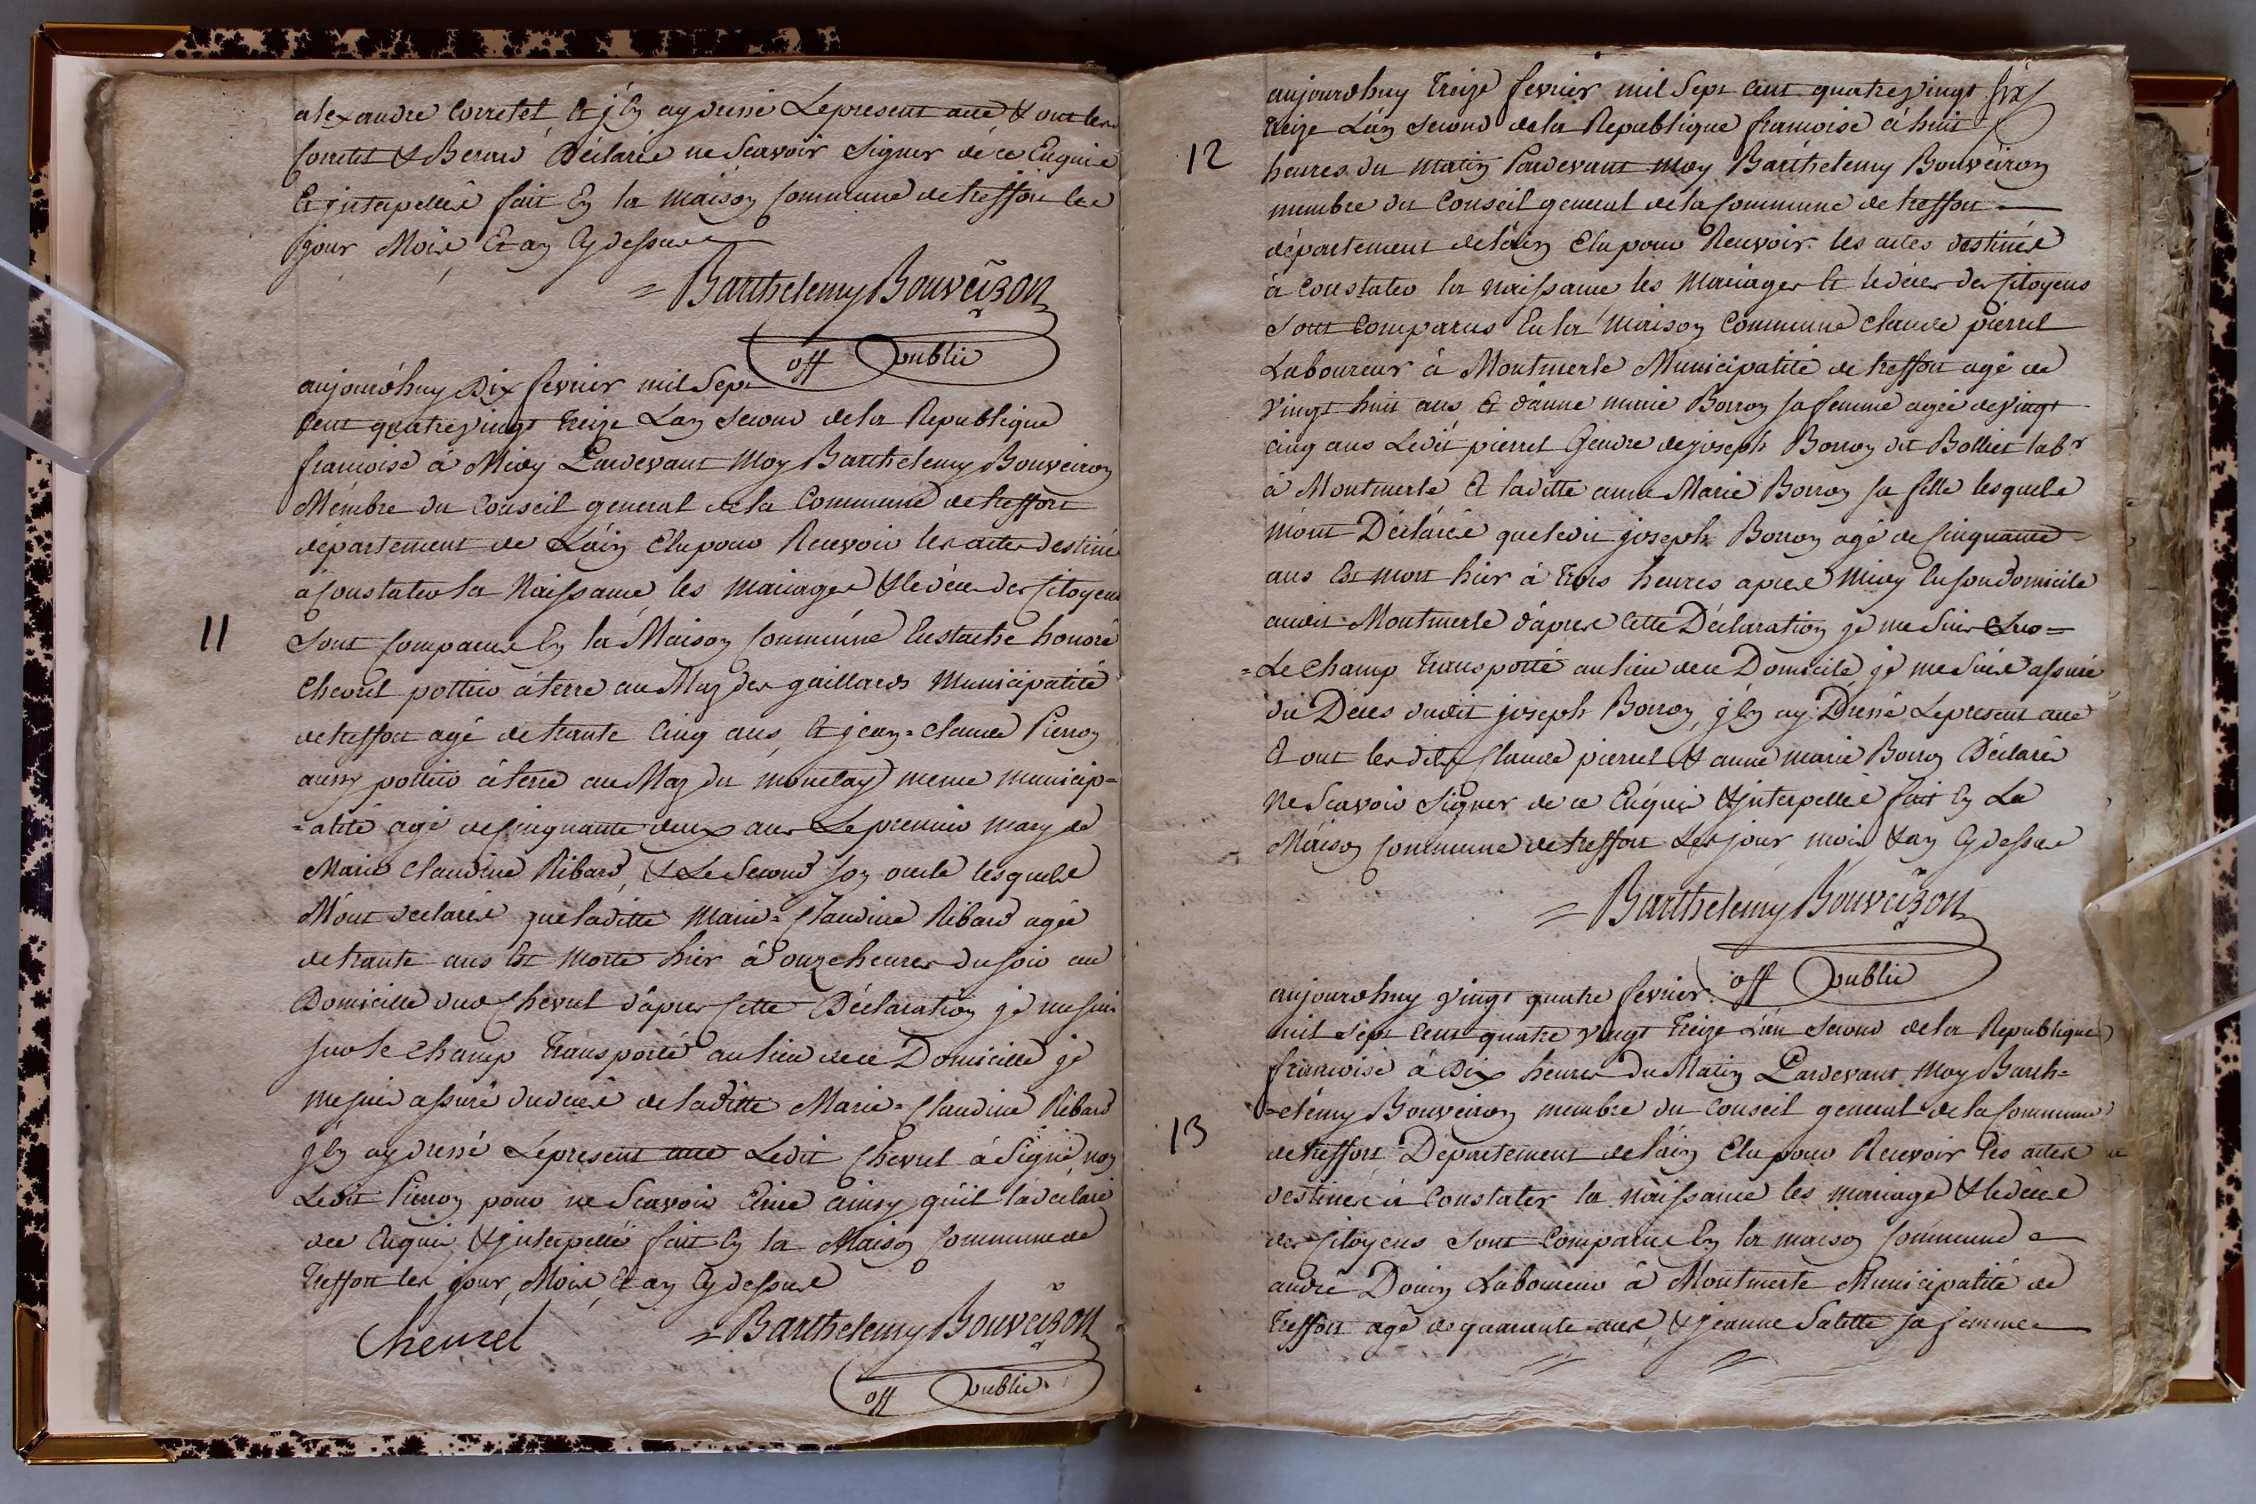 alexandre Corretel et j'En ay dressé Le present acte & ont les
Corretel & Berard Déclarés ne Scavoir Signer de ce Enquis
Et jnterpellés fait En la Maison Commune de treffort les
jour Mois Et an Cy dessus
= Barthelemy Bouveiron
off public
aujourdhuy Dix fevrier mil Sept
Cent quatre vingt treize L'an Second de la Republique
francoise à Midy Pardevant Moy Barthelemy Bouveiron
Membre du Conseil general de la Commune de treffort
département de L'ain Elu pour Recevoir les actes destinés
à Constater la Naissance les mariages & le décès des Citoyens
11
Sont Comparus En la Maison Commune Eustache honoré
Chevrel pottier à terre au Maz des gaillards Municipatité
de treffort agé de trante Cinq ans Et jean=Claude Pierron
aussy pottier à terre au Maz du monclay meme municip=
=alité agé de Cinquante deux ans Le premier mary de
Marie Claudine Ribard, & Le Second son oncle lesquels
M'ont declarés que laditte Marie=Claudine Ribard agée
de trante ans Est Morte hier à onze heures du soir au
Domicille dud Chevrel d'après Cette Déclaration je me suis
sur le Champ Transporté au lieu de ce Domicille je
me suis assuré du décés de laditte Marie=Claudine Ribard
j'En ay dressé Le present acte Ledit Chevrel à Signé non
Ledit Pierron pour ne Scavoir Ecrire ainsy qu'il l'a déclaré
de ce Enquis & jnterpellé fait En la Maison Commune de
Treffort les jour, Mois, Et an Cy dessus
Chevrel = Barthelemy Bouveiron
off public
aujourdhuy treize fevrier mil Sept cent quatre vingt
treize L'an Second de la Republique francoise à huit
12
heures du matin Pardevant moy Barthelemy Bouveiron
membre du Conseil general de la Commune de treffort
département de l'ain Elu pour Recevoir les actes destinés
à Constater la naissance les Mariages Et le décès des Citoyens
Sont Comparus En la Maison Commune Claude pierrel
Laboureur à Montmerle Municipatité de treffort agé de
vingt huit ans, Et d'anne marie Borron sa femme agée de vingt
cinq ans Ledit pierrel Gendre de joseph Borron dit Bolliet labr
à Montmerle Et laditte anne Marie Borron sa fille lesquels
m'ont Déclarés que ledit joseph Borron agé de Cinquante
ans Est mort hier à trois heures après Midy En son domicile
audit Montmerle d'après Cette Déclaration je me Suis Sur=
=Le Champ Transporté au lieu de ce Domicile je me Suis assuré
du Décès dudit joseph Borron, j'En ay Dressé Le present acte
Et ont les dits Claude pierrel & anne marie Borron Déclarés
Ne Scavoir Signer de ce Enquis & jnterpellés fait En La
Maison Commune de treffort Les jour mois & an Cy dessus
= Barthelemy Bouveiron
off public
aujourdhuy vingt quatre fevrier
mil Sept Cent quatre vingt treize L'an Second de la Republique
francoise à Dix heures Du Matin Pardevant Moy Barth=
=elémy Bouveiron membre du Conseil general de la Commune
13
de treffort Département de l'ain Elu pour Recevoir les actes
destinés à Constater la naissance les mariages & le décès
des Citoyens Sont Comparus En la maison Commune
andré Douin Laboureur à Montmerle Municipatité de
treffort agé de quarante ans, & jeanne Salette sa femme